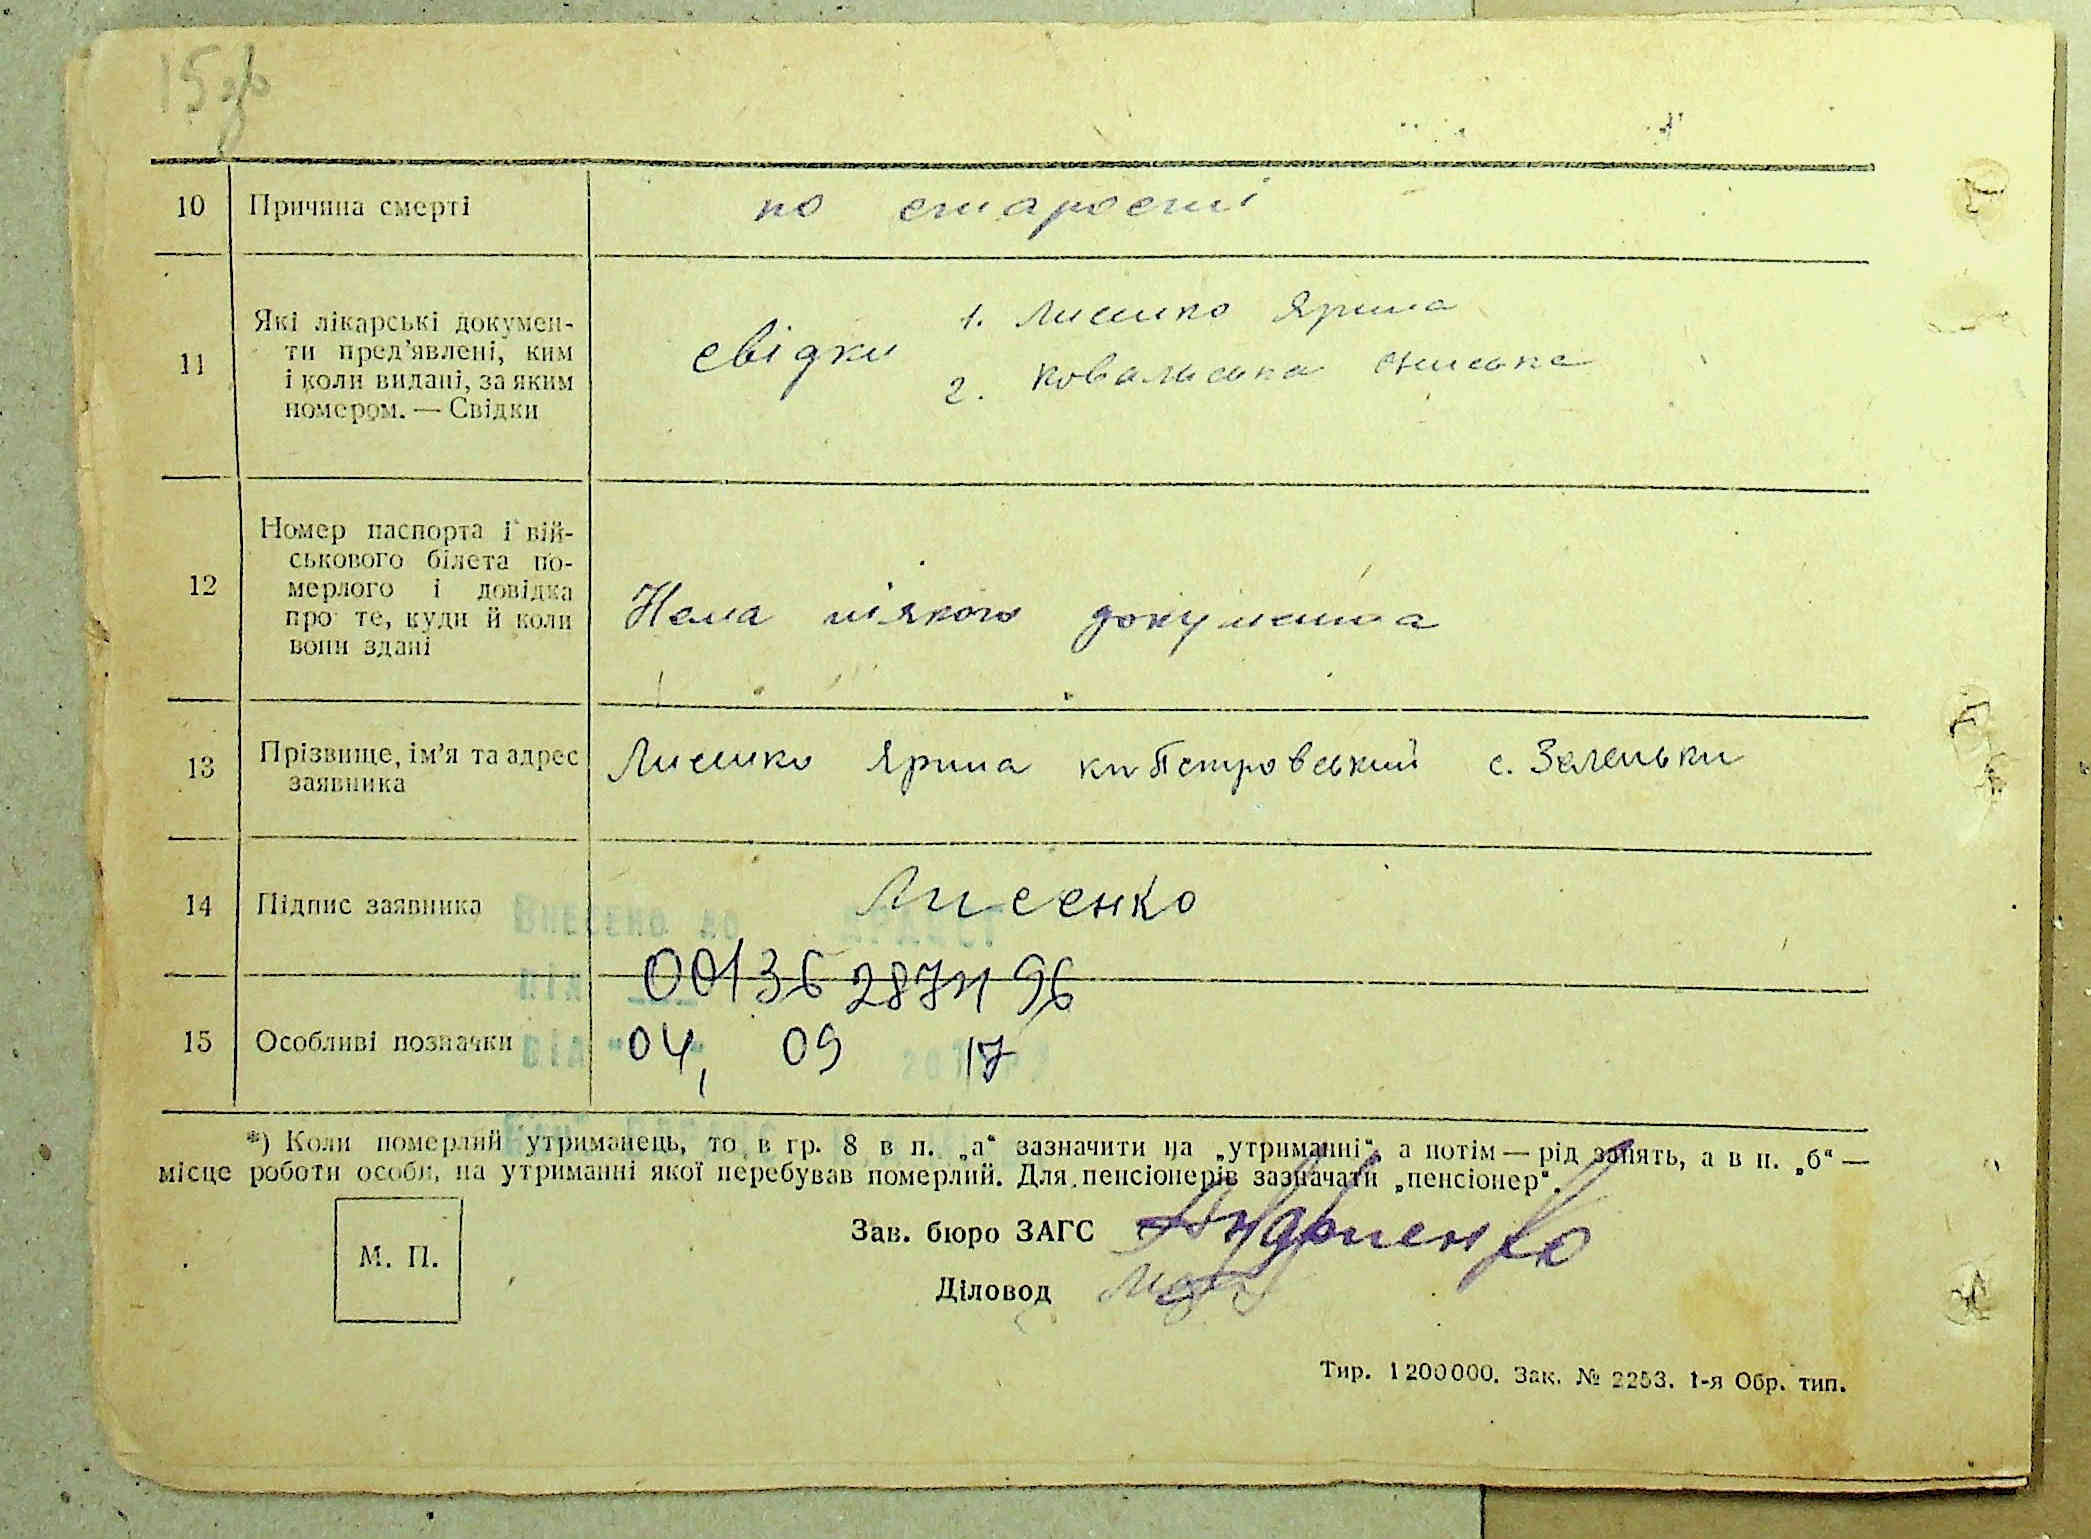 15 зв
10 Причина смерті по старости
11 Які лікарські докумен-
ти пред’явлені, ким
і коли видані, за яким
номером. — Свідки
свідки 1. Лисинко Ярина
2. Ковалиська
12 Номер паспорта і вій-
ськового білета по-
мерлого і довідка
про те, куди й коли
вони здані
Нема ніякого документа
13 Прізвище, ім’я та адрес
заявника
Лисинко Ярина Петровський с. Зеленьки
14 Підпис заявника Лисенко
Внесено до ДРАЦСГ
00136287496
15 Особливі позначки 04, 09 17
*) Коли померлий утриманець, то в гр. 8 в п. „а“ зазначити на „утриманні“, а потім — рід занять, а в п. „б“ —
місце роботи особи, на утриманні якої перебував померлий. Для пенсіонерів зазначати „пенсіонер“.
М. П.
Зав. бюро ЗАГС
Діловод
Тир. 1 200 000. Зак. № 2253. 1-я Обр. тип.